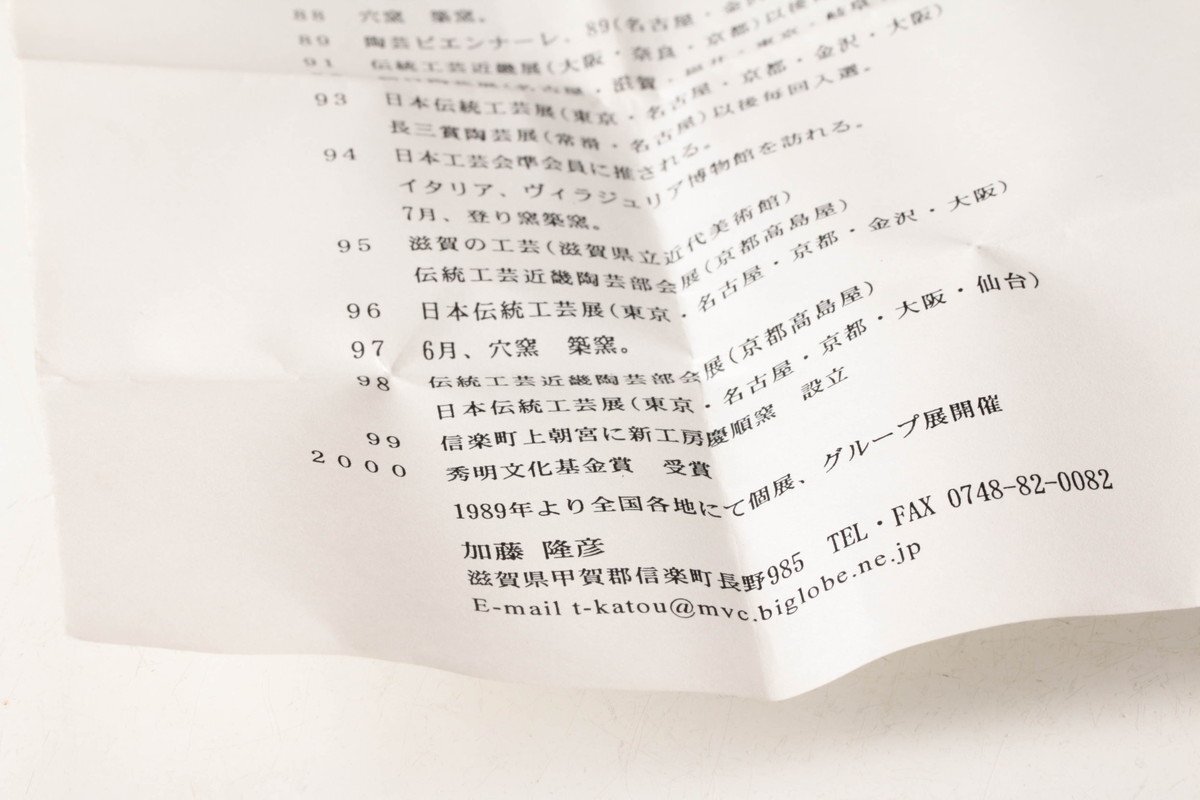 88 穴窯 築窯。
89 陶芸ビエンナーレ、89(名古屋・金沢)以後
91 伝統工芸近畿展(大阪・奈良・京都)以
(名古屋・滋賀・福井・東京・岐阜
93 日本伝統工芸展(東京・名古屋・京都・金沢・大阪)
長三賞陶芸展(常滑・名古屋)以後毎回入選。
94 日本工芸会準会員に推される。
イタリア、ヴィラジュリア博物館を訪れる。
7月、登り窯築窯。
95 滋賀の工芸(滋賀県立近代美術館)
伝統工芸近畿陶芸部会展(京都高島屋)
96 日本伝統工芸展(東京・名古屋・京都・金沢・大阪)
97 6月、穴窯 築窯。
98 伝統工芸近畿陶芸部会展(京都高島屋)
日本伝統工芸展(東京・名古屋・京都・大阪・仙台)
99 信楽町上朝宮に新工房慶順窯 設立
2000 秀明文化基金賞 受賞
1989年より全国各地にて個展、グループ展開催
加藤 隆彦
滋賀県甲賀郡信楽町長野985 TEL・FAX 0748-82-0082
E-mail t-katou@mvc.biglobe.ne.jp